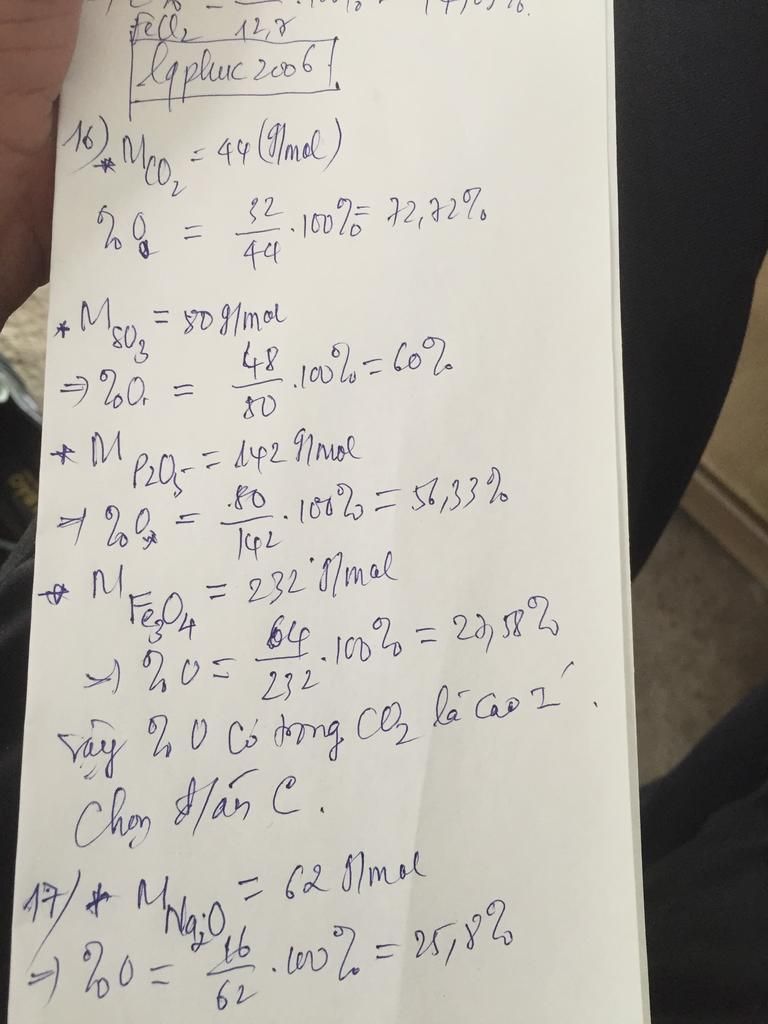 FeCl2 12,7
lqphuc2006
16) * M CO2 = 44 (g/mol)
%O = 32/44 . 100% = 72,72%
* M SO3 = 80 g/mol
=> %O = 48/80 . 100% = 60%
* M P2O5 = 142 g/mol
=> %O = 80/142 . 100% = 56,33%
* M Fe3O4 = 232 g/mol
=> %O = 64/232 . 100% = 27,58%
Vậy %O có trong CO2 là cao I'.
Chọn đ/án C.
17/ * M Na2O = 62 g/mol
=> %O = 16/62 . 100% = 25,8%